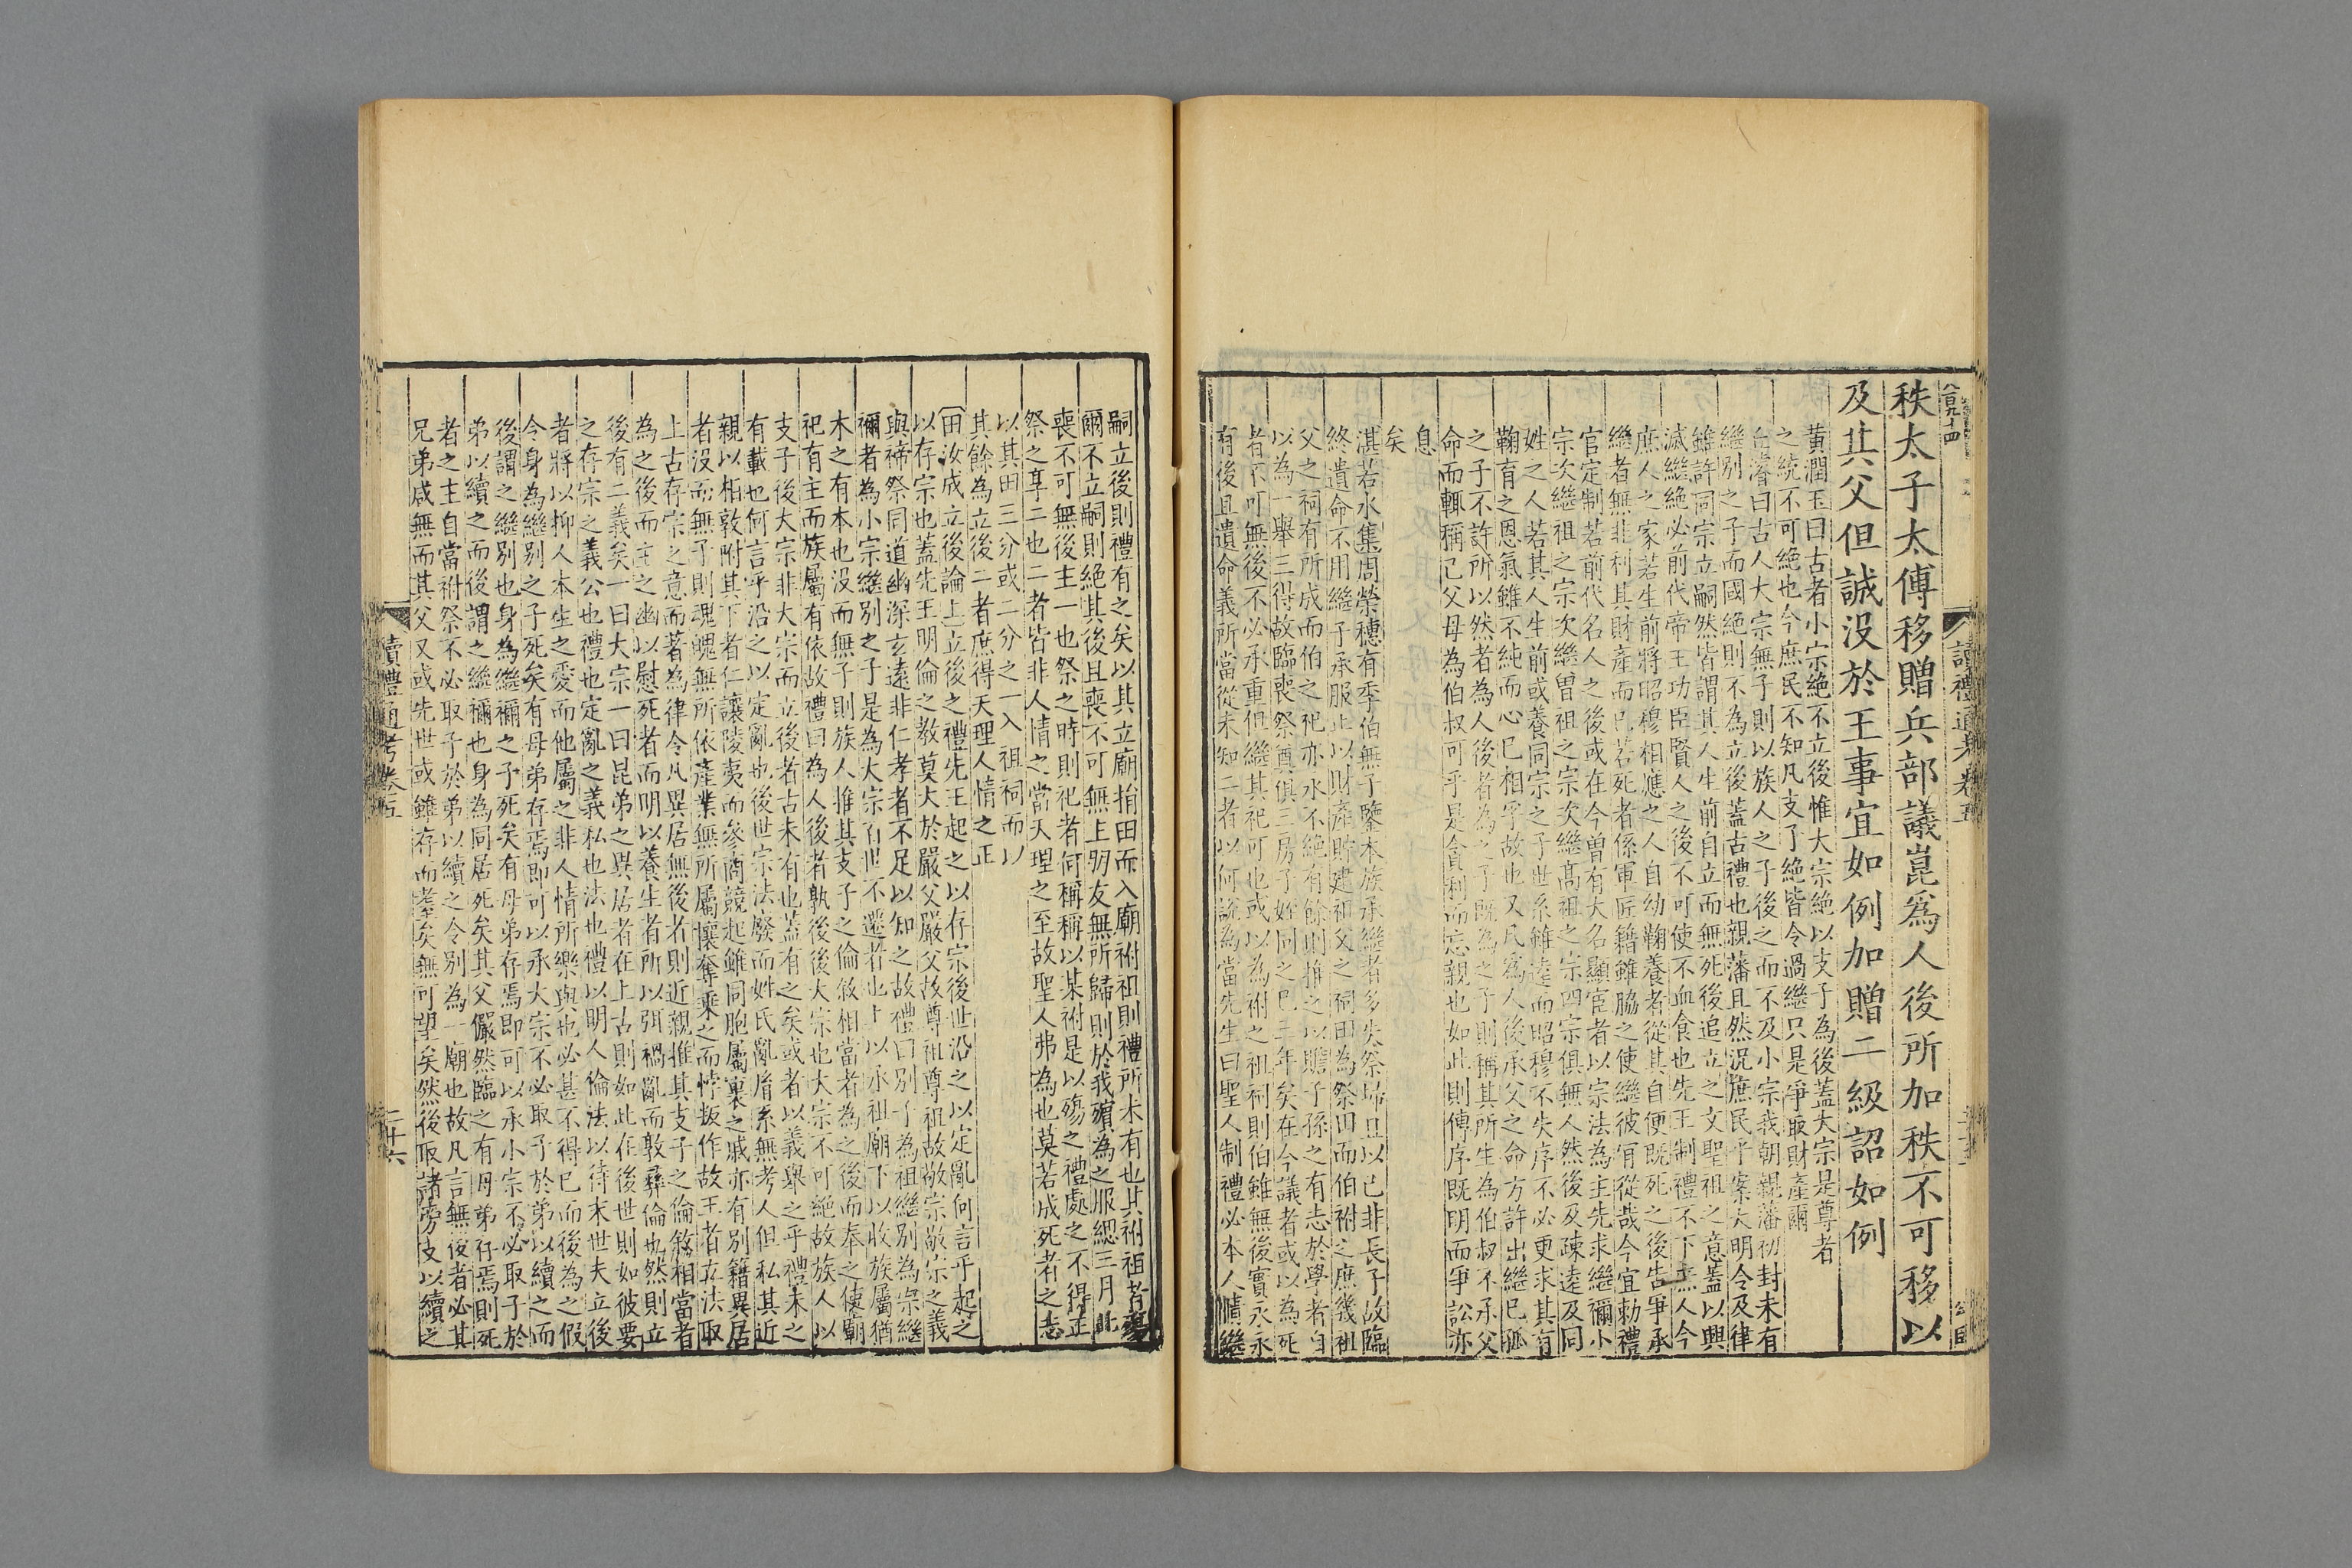 秩太子太傅移贈兵部議崑爲人後所加秩不可移以
及其父但誠没於王事宜如例加贈二級詔如例
黃潤玉曰古者小宗絶不立後惟大宗絶以支子為後蓋大宗是尊者
之統不可絶也今庶民不知凡支子絶皆令過繼只是爭取財產爾
丘濬曰古人大宗無子則以族人之子後之而不及小宗我朝親藩初封未有
繼别之子而國絶則不為立後蓋古禮也親藩且然況庶民乎案大明令及律
雖許同宗立嗣然皆謂其人生前自立而無死後追立之文聖祖之意蓋以興
滅繼絶必前代帝王功臣賢人之後不可使不血食也先王制禮不下庶人今
庶人之家若生前將昭穆相應之人自幼鞠養者從其自便既死之後告爭承
繼者無非利其財產而已若死者係軍匠籍雖脇之使繼彼肯從哉今宜勅禮
官定制若前代名人之後或在今曽有大名顯宦者以宗法為主先求繼禰小
宗次繼祖之宗次繼曽祖之宗次繼高祖之宗四宗俱無人然後及疎逺及同
姓之人若其人生前或養同宗之子世系雖逺而昭穆不失序不必更求其有
鞠育之恩氣雖不純而心已相孚故也又凡為人後承父之命方許出繼已孤
之子不許所以然者為人後者為之子既為之子則稱其所生為伯叔不承父
命而輒稱己父母為伯叔可乎是貪利而忘親也如此則傳序既明而爭訟亦
息
矣
湛若水集周榮穗有季伯無子鑒本族承繼者多失祭埽且以己非長子故臨
終遺命不用繼子承服止以財產貯建祖父之祠田為祭田而伯祔之庶幾祖
父之祠有所成而伯之祀亦永永不絶有餘則推之以贍子孫之有志於學者自
以為一舉三得故臨喪祭奠俱三房子姪同之已三年矣在今議者或以為死
者不可無後不必承重但繼其祀可也或以為祔之祖祠則伯雖無後實永永
有後且遺命義所當從未知二者以何說為當先生曰聖人制禮必本人情繼
嗣立後則禮有之矣以其立廟捐田而入廟祔祖則禮所未有也其祔祖者殤
爾不立嗣則絶其後且喪不可無主朋友無所歸則於我殯為之服緦三月此
喪不可無後主一也祭之時則祀者何稱稱以某祔是以殤之禮處之不得正
祭之享二也二者皆非人情之當天理之至故聖人弗為也莫若成死者之志
以其田三分或二分之一入祖祠而以
其餘為立後二者庶得天理人情之正
田汝成立後論上立後之禮先王起之以存宗後世沿之以定亂何言乎起之
以存宗也蓋先王明倫之敎莫大於嚴父嚴父故尊祖尊祖故敬宗敬宗之義
與禘祭同道幽深玄遠非仁孝者不足以知之故禮曰别子為祖繼别為宗繼
禰者為小宗繼别之子是為大宗百世不遷者也上以承祖廟下以收族屬猶
木之有本也没而無子則族人推其支子之倫敘相當者為之後而奉之使廟
祀有主而族屬有依故禮曰為人後者孰後後大宗也大宗不可絶故族人以
支子後大宗非大宗而立後者古未有也蓋有之矣或者以義舉之乎禮未之
有載也何言乎沿之以定亂也後世宗法廢而姓氏亂㡹系無考人但私其近
親以相敦附其下者仁讓陵夷而參商競起雖同胞屬裏之戚亦有别籍異居
者没而無子則魂魄無所依產業無所屬懷奪乘之而悖叛作故王者立法取
上古存宗之意而著為律令凡異居無後者則近親推其支子之倫敘相當者
為之後而主之幽以慰死者而明以養生者所以弭禍亂而敦彝倫也然則立
後有二義矣一曰大宗一曰昆弟之異居者在上古則如此在後世則如彼要
之存宗之義公也禮也定亂之義私也法也禮以明人倫法以待末世夫立後
者將以抑人本生之愛而他屬之非人情所樂與也必甚不得已而後為之假
令身為繼别之子死矣有母弟存焉即可以承大宗不必取子於弟以續之而
後謂之繼别也身為繼禰之子死矣有母弟存焉即可以承小宗不必取子於
弟以續之而後謂之繼禰也身為同居死矣其父儼然臨之有母弟存焉則死
者之主自當祔祭不必取子於弟以續之令别為一廟也故凡言無後者必其
兄弟咸無而其父又或先世或雖存而耄矣無可望矣然後取諸旁支以續之
讀禮通考卷五
二十六
讀禮通考卷五